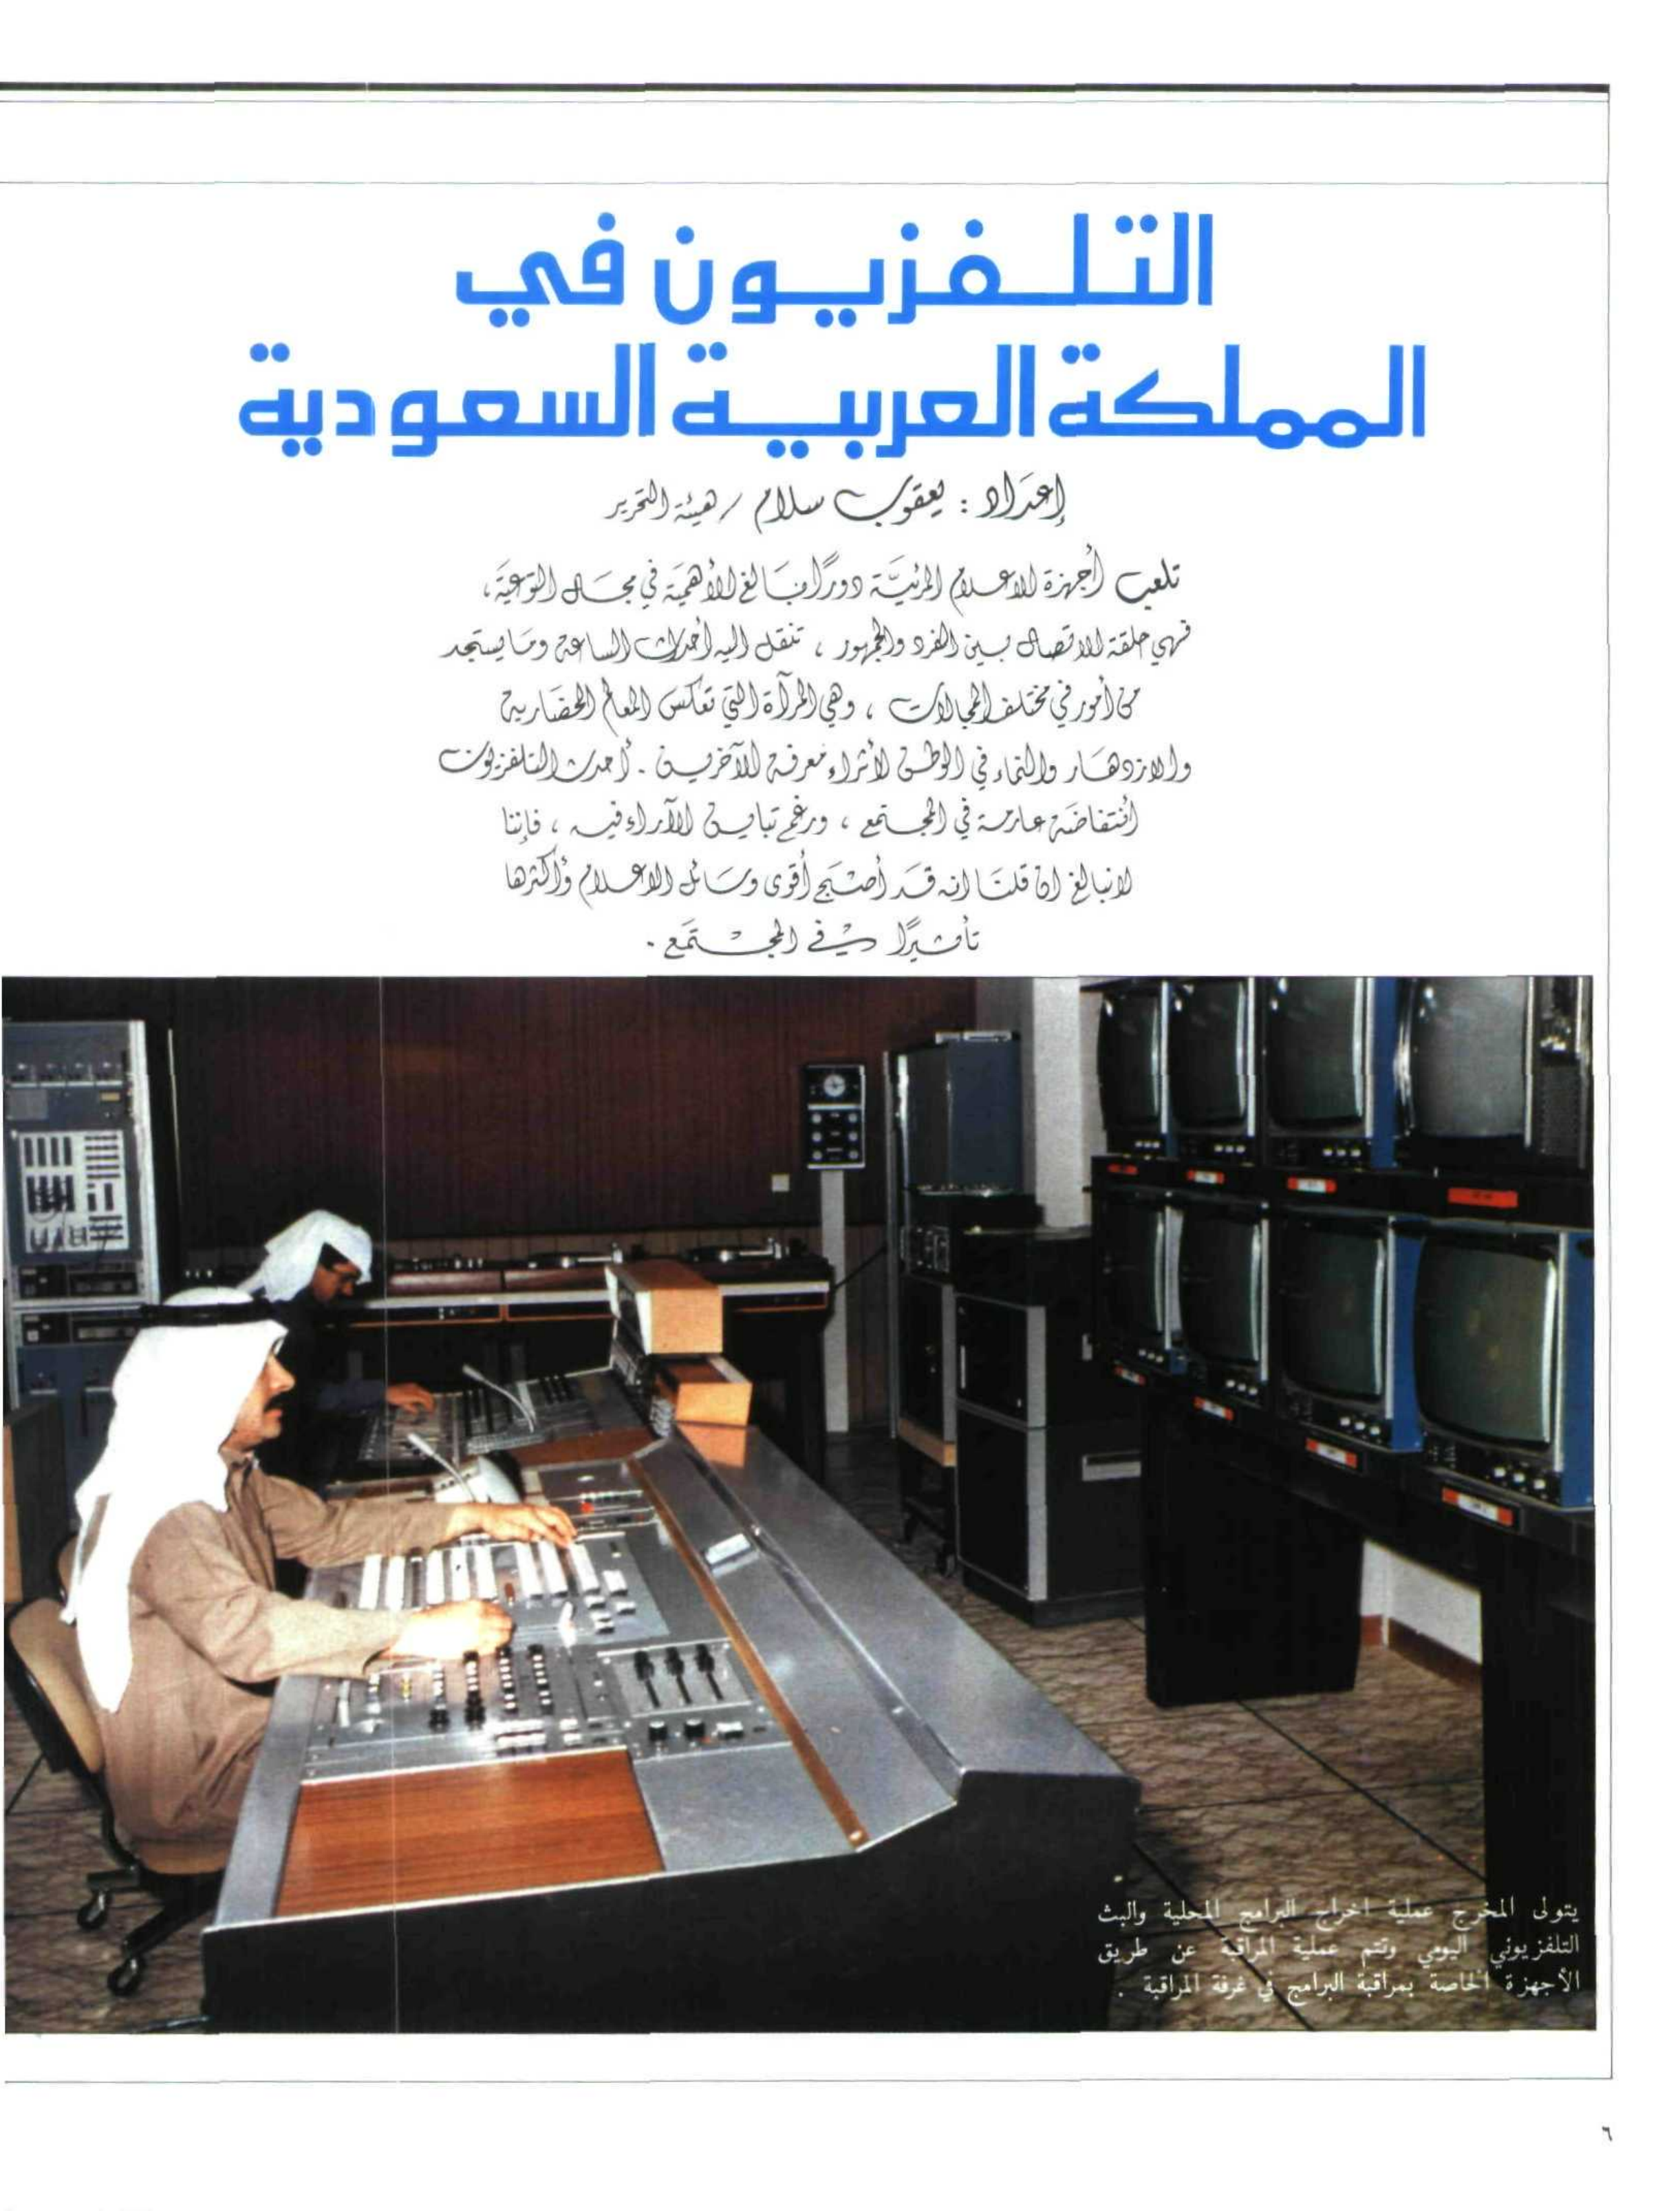 التلفزيون في
المملكة العربية السعودية
إعداد : يعقوب سلام / هيئة التحرير
تلعب أجهزة الاعلام المرئية دورًا بالغ الأهمية في مجال التوعية،
فهي حلقة الاتصال بين الفرد والجمهور ، تنقل اليه أحداث الساعة وما يستجد
من أمور في مختلف المجالات ، وهي المرآة التي تعكس المعالم الحضارية
والازدهار والنماء في الوطن لأثراء معرفة الآخرين . أحدث التلفزيون
أنتفاضة عارمة في المجتمع ، ورغم تباين الآراء فيه ، فإننا
لانبالغ ان قلنا انه قد أصبح أقوى وسائل الاعلام وأكثرها
تأثيرًا في المجتمع .
يتولى المخرج عملية اخراج البرامج المحلية والبث
التلفزيوني اليومي وتتم عملية المراقبة عن طريق
الأجهزة الخاصة بمراقبة البرامج في غرفة المراقبة .
٦